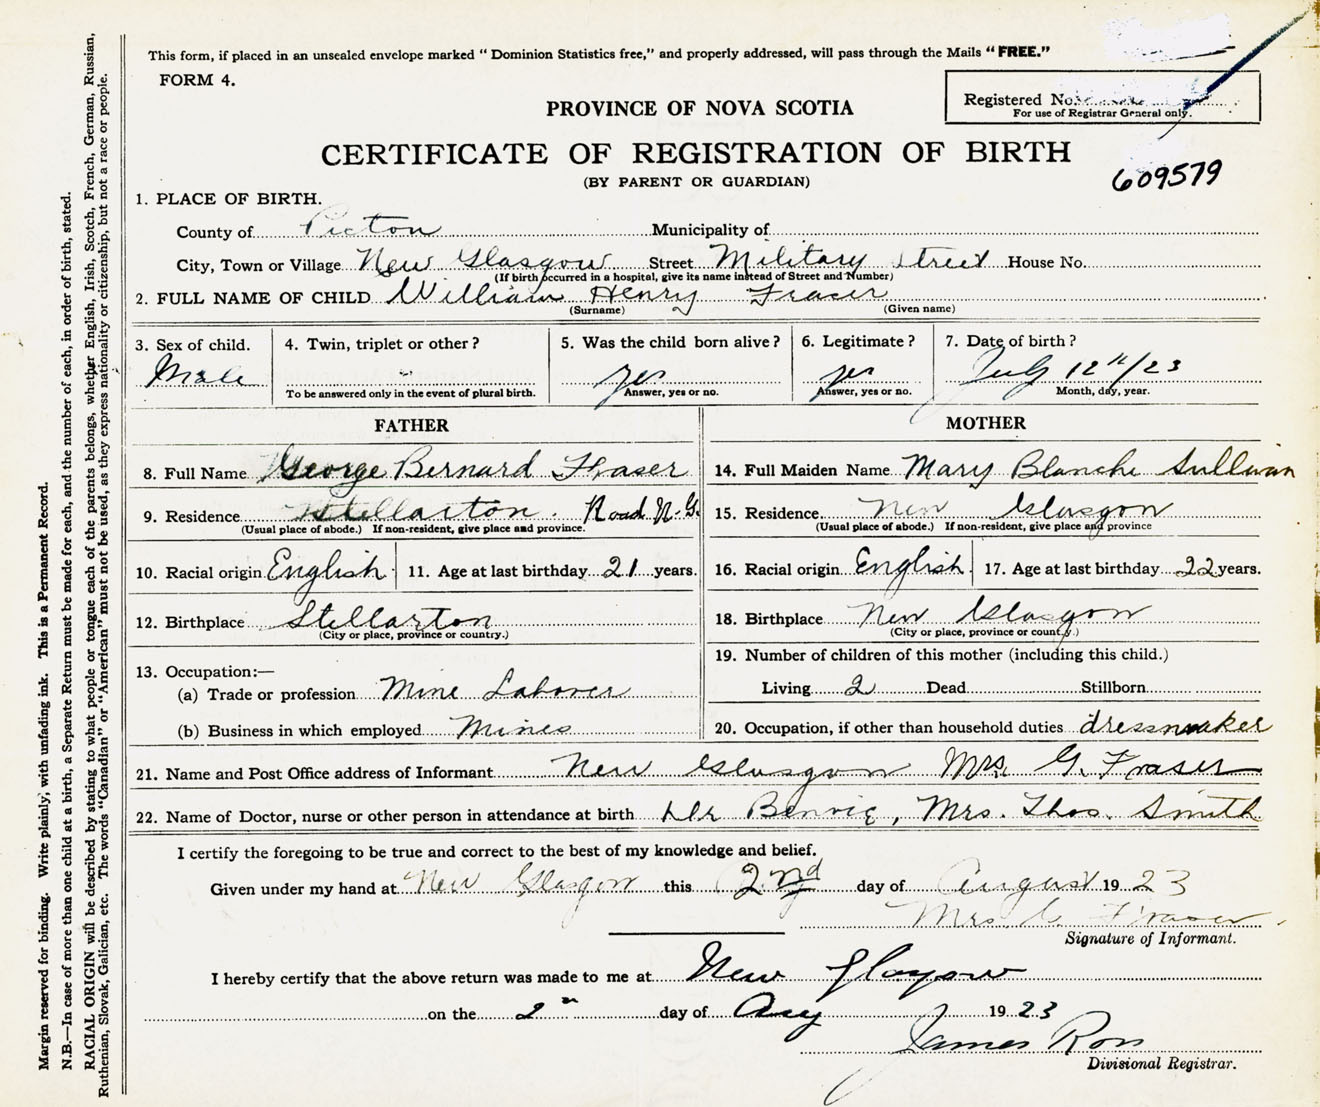 This form, if placed in an unsealed envelope marked " Dominion Statistics free," and properly addressed, will pass through the Mails " FREE."
FORM 4.
Registered No.
For use of Registrar General only.
PROVINCE OF NOVA SCOTIA
CERTIFICATE OF REGISTRATION OF BIRTH
(BY PARENT OR GUARDIAN)
609579
1. PLACE OF BIRTH.
County of Picton Municipality of
City, Town or Village New Glasgow Street Military Street House No.
(If birth occurred in a hospital, give its name instead of Street and Number)
2. FULL NAME OF CHILD William Henry Fraser
(Surname) (Given name)
3. Sex of child. 4. Twin, triplet or other? 5. Was the child born alive? 6. Legitimate? 7. Date of birth?
Male yes yes July 12th/23
To be answered only in the event of plural birth. Answer, yes or no. Answer, yes or no. Month, day, year.
FATHER
8. Full Name George Bernard Fraser
9. Residence Stellarton Road N.G.
(Usual place of abode.) If non-resident, give place and province.
10. Racial origin English 11. Age at last birthday 21 years.
12. Birthplace Stellarton
(City or place, province or country.)
13. Occupation:—
(a) Trade or profession Mine Laborer
(b) Business in which employed Mines
MOTHER
14. Full Maiden Name Mary Blanche Sullivan
15. Residence New Glasgow
(Usual place of abode.) If non-resident, give place and province
16. Racial origin English 17. Age at last birthday 22 years.
18. Birthplace New Glasgow
(City or place, province or country.)
19. Number of children of this mother (including this child.)
Living 2 Dead Stillborn
20. Occupation, if other than household duties dressmaker
21. Name and Post Office address of Informant New Glasgow Mrs. G. Fraser
22. Name of Doctor, nurse or other person in attendance at birth Dr Benvie, Mrs. Thos. Smith
I certify the foregoing to be true and correct to the best of my knowledge and belief.
Given under my hand at New Glasgow this 2nd day of August 1923
Mrs G. Fraser
Signature of Informant.
I hereby certify that the above return was made to me at New Glasgow
on the 2n day of Aug 1923
James Ross
Divisional Registrar.
Margin reserved for binding. Write plainly, with unfading ink. This is a Permanent Record.
N.B.—In case of more than one child at a birth, a Separate Return must be made for each, and the number of each, in order of birth, stated.
RACIAL ORIGIN will be described by stating to what people or tongue each of the parents belongs, whether English, Irish, Scotch, French, German, Russian,
Ruthenian, Slovak, Galician, etc. The words "Canadian" or "American" must not be used, as they express nationality or citizenship, but not a race or people.